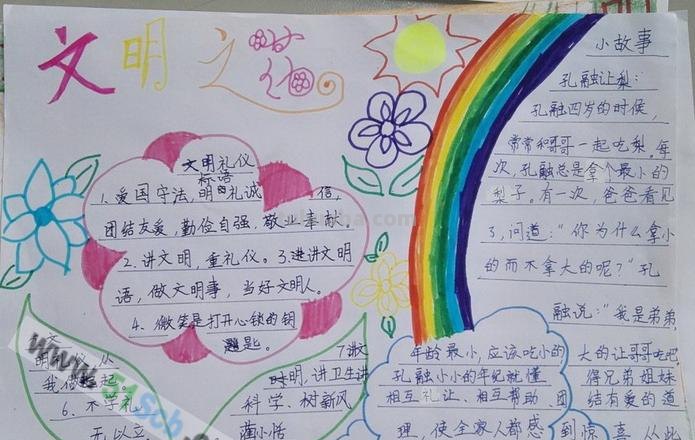 文明之花
文明礼仪
标语
1、爱国守法，明礼诚信，
团结友爱，勤俭自强，敬业奉献。
2、讲文明，重礼仪。3、进讲文明
语，做文明事，当好文明人。
4、微笑是打开心锁的钥
匙。
我做起。
6、不学礼，
无以立。
7讲文
明，讲卫生讲
科学、树新风
小故事
孔融让梨：
孔融四岁的时候，
常常和哥哥一起吃梨。每
次，孔融总是拿个最小的
梨子。有一次，爸爸看见
了，问道：“你为什么拿小
的而不拿大的呢？”孔
融说：“我是弟弟，
年龄最小，应该吃小的 大的让哥哥吃吧
孔融小小的年纪就懂 得兄弟姐妹
相互礼让、相互帮助、团 结有爱的道
理，使全家人都感到惊喜。从此